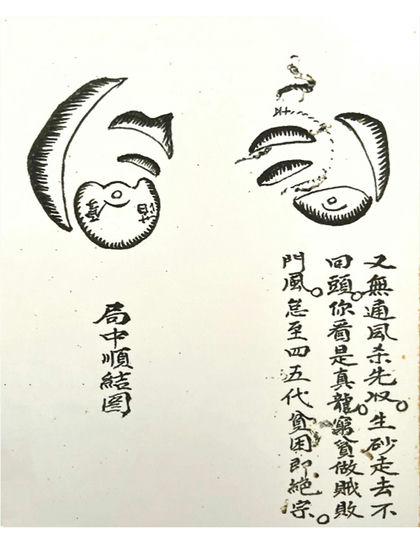 又無通風杀先収。生砂走去不
回頭。你看是真龍。窮貧做賊敗
門風。至四五代貧困即絕宗。
局中順結圖